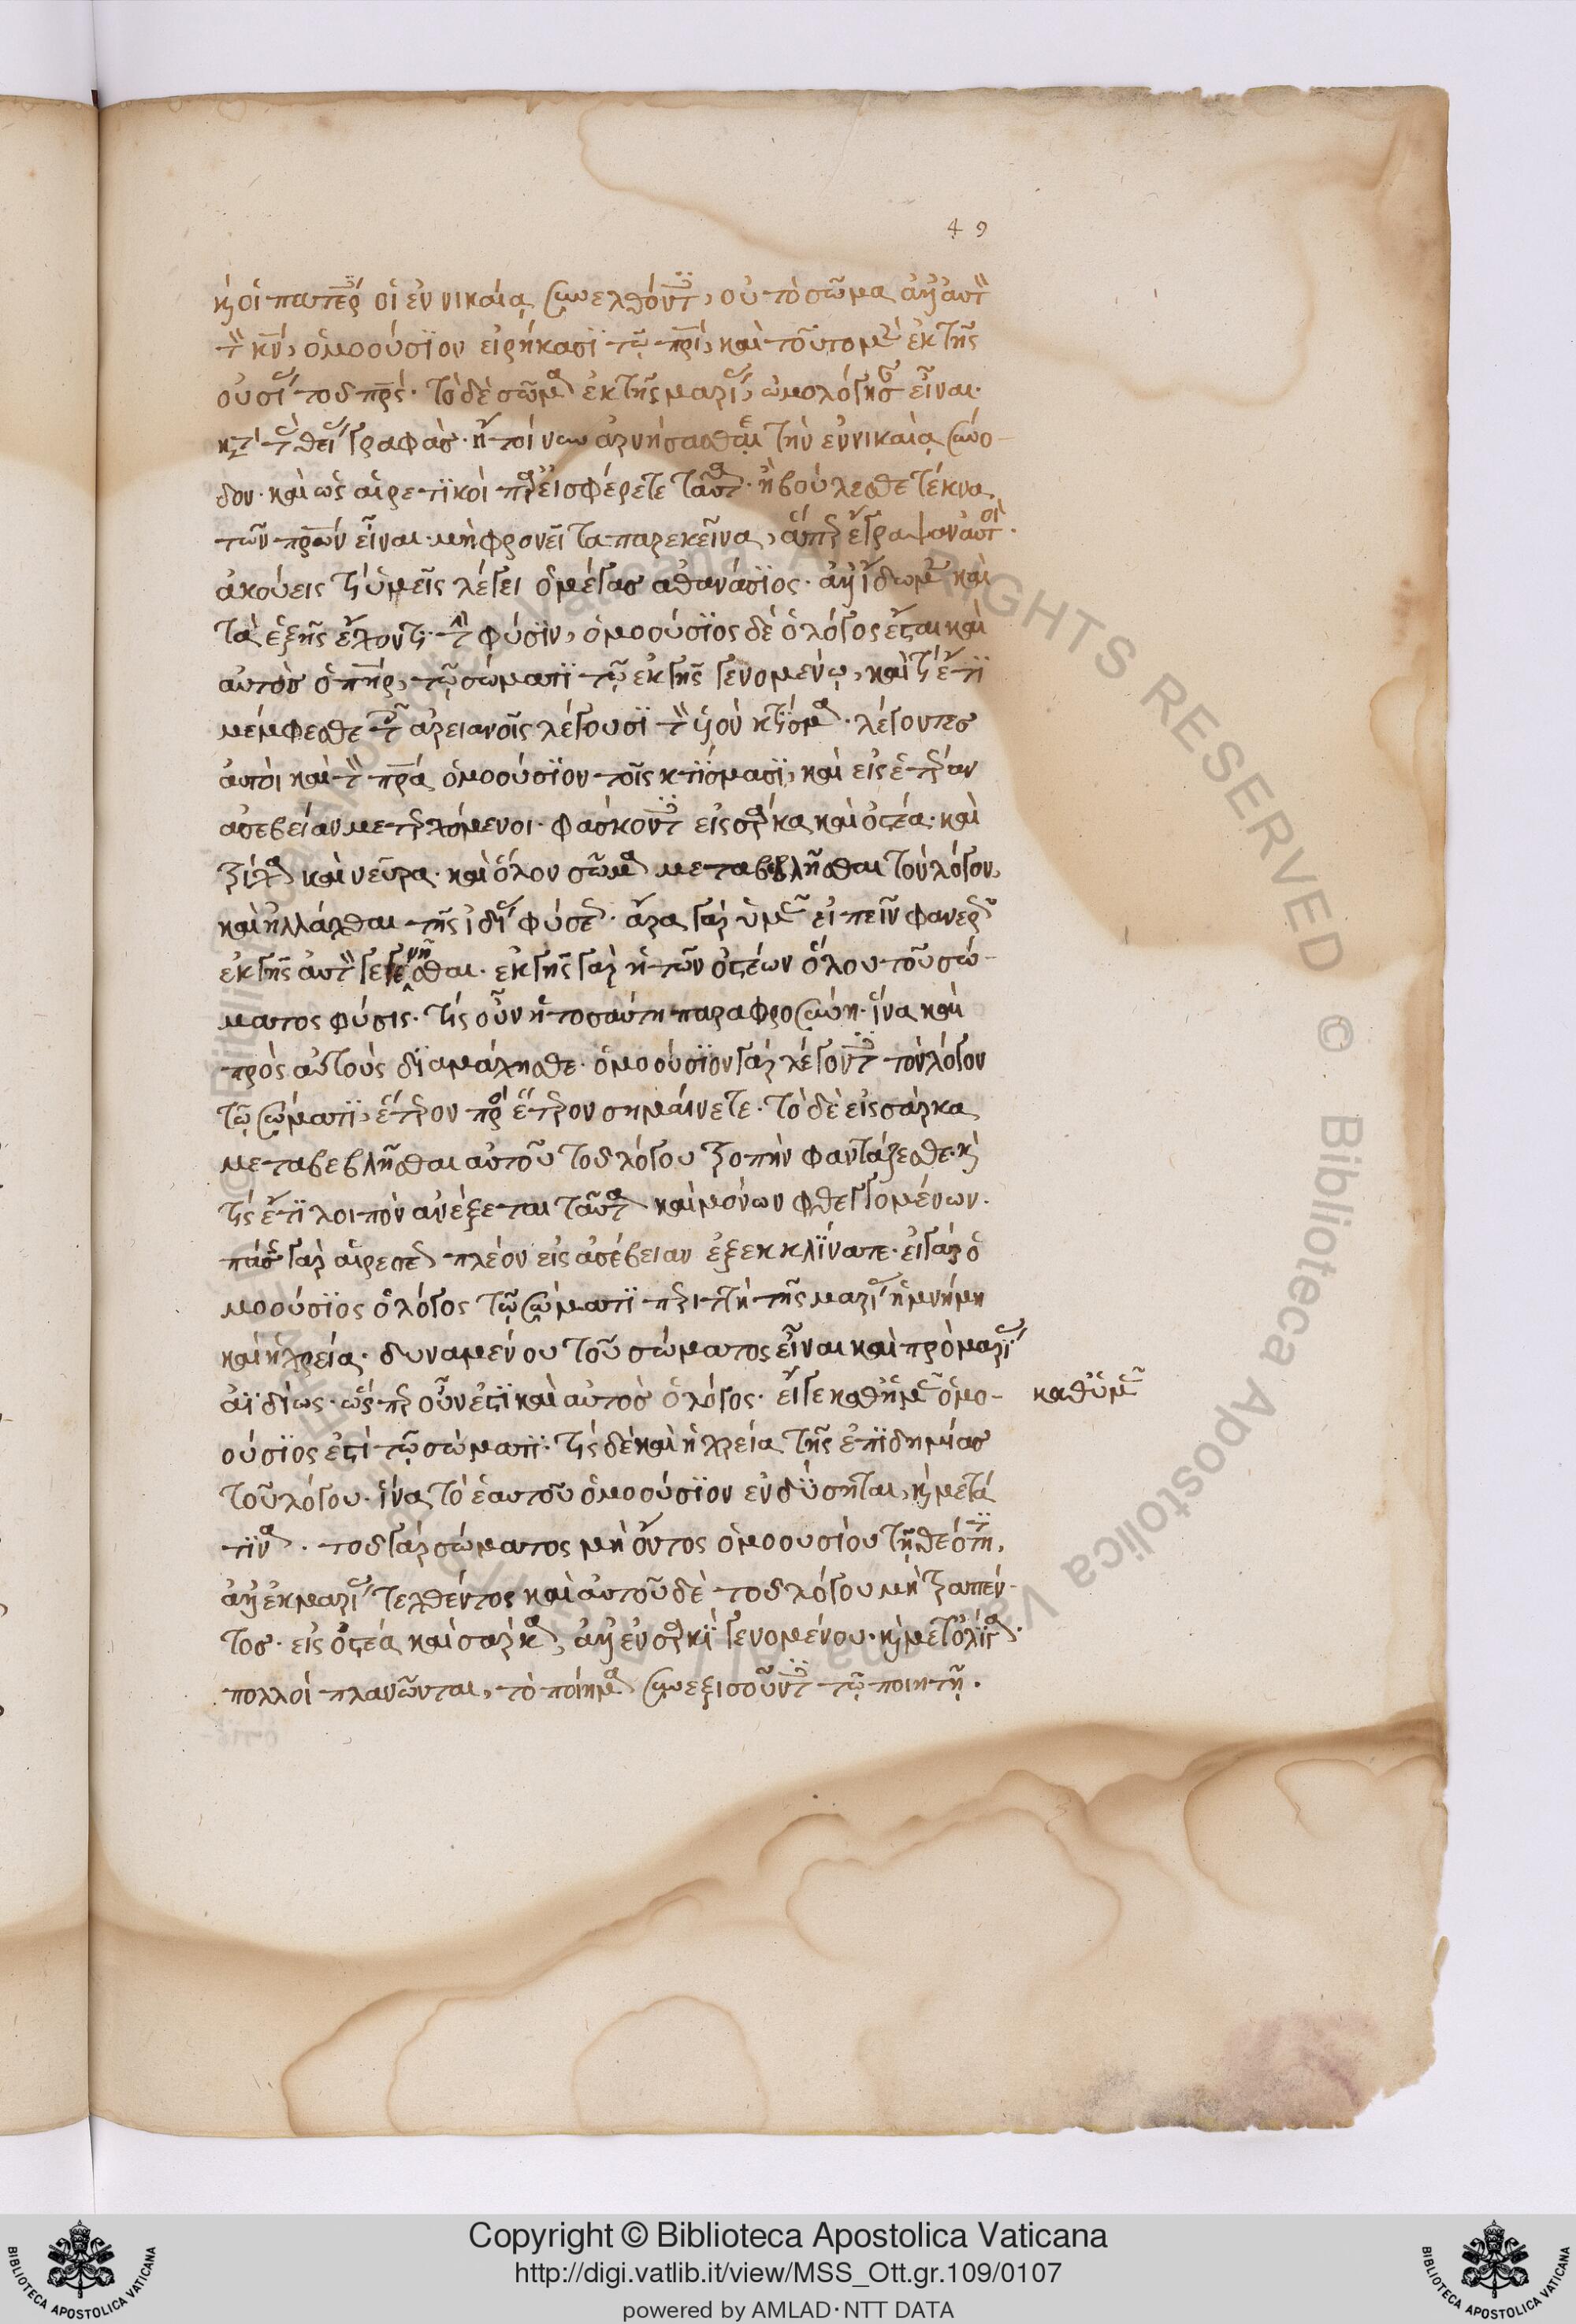 49
κ οἱ πατερ οἱ ἐν νικαία συνελθόντ, οὐ τὸ σῶμα ἀλλ' αὐτ
τ κν, ὁμοούσϊον εἰρήκασϊ τῷ πρι, καὶ τοῦτο μ ἐκ τῆς
οὐσί τοῦ πρς· τὸ δὲ σῶμ ἐκ τῆς μαρί, ὡμολόγησ εἶναι·
κτ τ θεί γραφὰσ· ἢ τοίνυν ἀρνήσασθαι τὴν ἐν νικαία συνο-
δον· καὶ ὡς αἱρετϊκοὶ πρεισφέρετε ταῦτ· ἢ βούλεσθε τέκνα
τῶν πρων εἶναι μὴ φρονεῖτα παρεκεῖνα, ἅπερ ἔγραψαν αὐτοὶ·
ἀκούεις τί ὑμεῖς λέγει ὁ μέγασ ἀθανάσϊος· ἀλλ' ἴδωμ καὶ
τὰ ἑξῆς ἔχοντ· τ φύσϊν, ὁμοούσϊος δὲ ὁ λόγος ἔσται καὶ
αὐτὸσ ὁ πηρ, τῷ σώματϊ τῷ ἐκ γῆς γενομένῳ, καὶ τί ἔτϊ
μέμφεσθε τ ἀρειανοῖς λέγουσϊ τ υον κτϊσμ· λέγοντεσ
αὐτοὶ καὶ τ πρα ὁμοούσϊον τοῖς κτίσμασϊ, καὶ εἰς ἑτέραν
ἀσεβείαν μετερχόμενοι· φάσκοντ εἰς σάρκα καὶ ὀστέα· καὶ
τρίχ καὶ νεῦρα· καὶ ὅλον σῶμ μεταβεβλῆσθαι τὸν λόγον,
καὶ ἠλλάχθαι τῆς ἰδί φύσε· ἄρα γὰρ ὑμ εἰπεῖν φανερ
ἐκ γῆς αὐτ γεγενῆσθαι· ἐκ γῆς γὰρ ἡ τῶν ὀστέων ὅλου τοῦ σώ-
ματος φύσις· τίς οὖν ἡ τοσαύτη παραφροσύνη· ἵνα καὶ
πρὸς αὐτοὺς διαμάχησθε· ὁμοούσϊον γὰρ λέγοντ τὸν λόγον
τῷ σώματϊ, ἕτερον πρ ἕτερον σημαίνετε· τὸ δὲ εἰς σάρκα
μεταβεβλῆσθαι αὐτοῦ τοῦ λόγου τροπὴν φαντάζεσθε· κ
τίς ἔτϊ λοιπὸν ἀνέξεται ταῦτ καὶ μόνων φθεγγομένων·
πάσ γὰρ αἱρεσε πλέον εἰς ἀσέβειαν ἐξεκκλϊνατε· εἰ γὰρ ὁ
μοούσϊος ὁ λόγος τῷ σώματϊ περιττὴ τῆς μαρί ἡ μνήμη
καὶ ἡ χρεία· δυναμένου τοῦ σώματος εἶναι καὶ πρὸ μαρί
ἀϊδίως· ὥσπερ οὖν ἐστϊ καὶ αὐτὸσ ὁ λόγος· εἴγε καθ' ἡμ ὁμο-
καθ' ὑμ
ούσϊος ἐστὶ τῷ σώματϊ· τίς δὲ καὶ ἡ χρεία τῆς ἐπϊδημίασ
τοῦ λόγου· ἵνα τὸ ἑαυτοῦ ὁμοούσϊον ἐνδύσηται, κ μετά
τϊν· τοῦ γὰρ σώματος μὴ ὄντος ὁμοουσίου τῇ θεότητϊ,
ἀλλ' ἐκ μαρί τεχθέντος καὶ αὐτοῦ δὲ τοῦ λόγου μὴ τραπέν-
τοσ· εἰς ὀστέα καὶ σάρκ, ἀλλ' ἐν σαρκϊ γενομένου· κ μετ' ὀλίγ·
πολλοὶ πλανῶνται, τὸ ποίημ συνεξισοῦντ τῷ ποιητῇ.
Copyright © Biblioteca Apostolica Vaticana
http://digi.vatlib.it/view/MSS_Ott.gr.109/0107
powered by AMLAD·NTT DATA
BIBLIOTECA APOSTOLICA VATICANA
BIBLIOTECA APOSTOLICA VATICANA